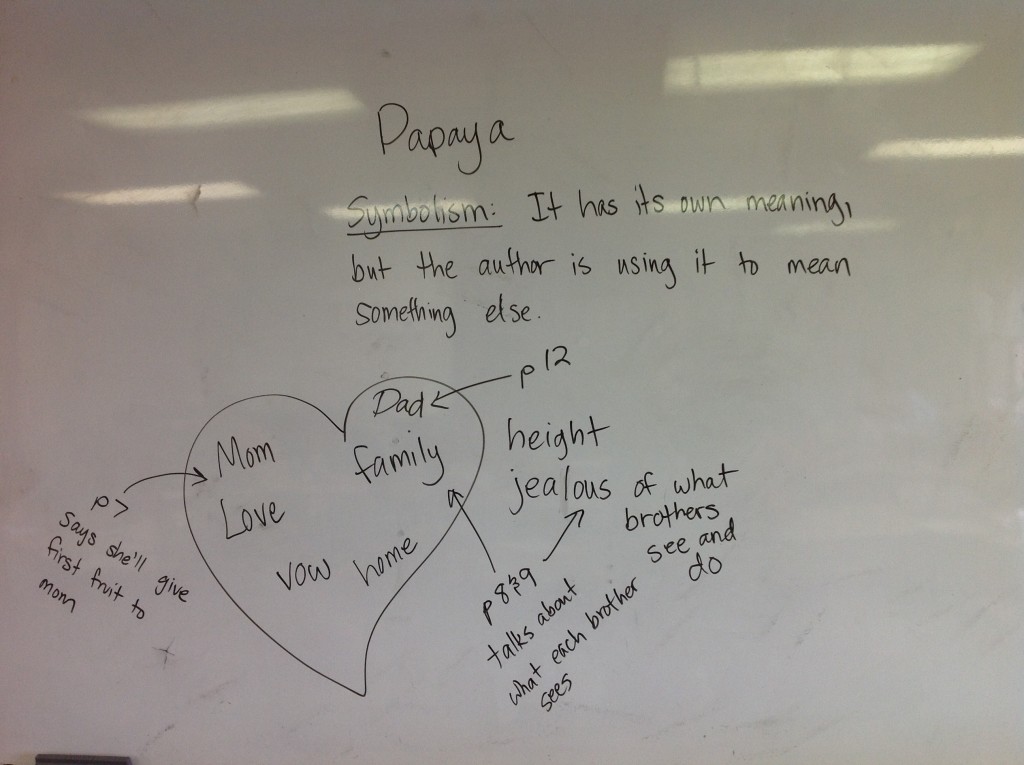 Papaya
Symbolism: It has its own meaning,
but the author is using it to mean
something else.
p 12
Dad
Mom
family
Love
vow home
height
jealous of what
brothers
see and
do
p 7
says she'll give
first fruit to
mom
p 8&9
talks about
what each brother
sees